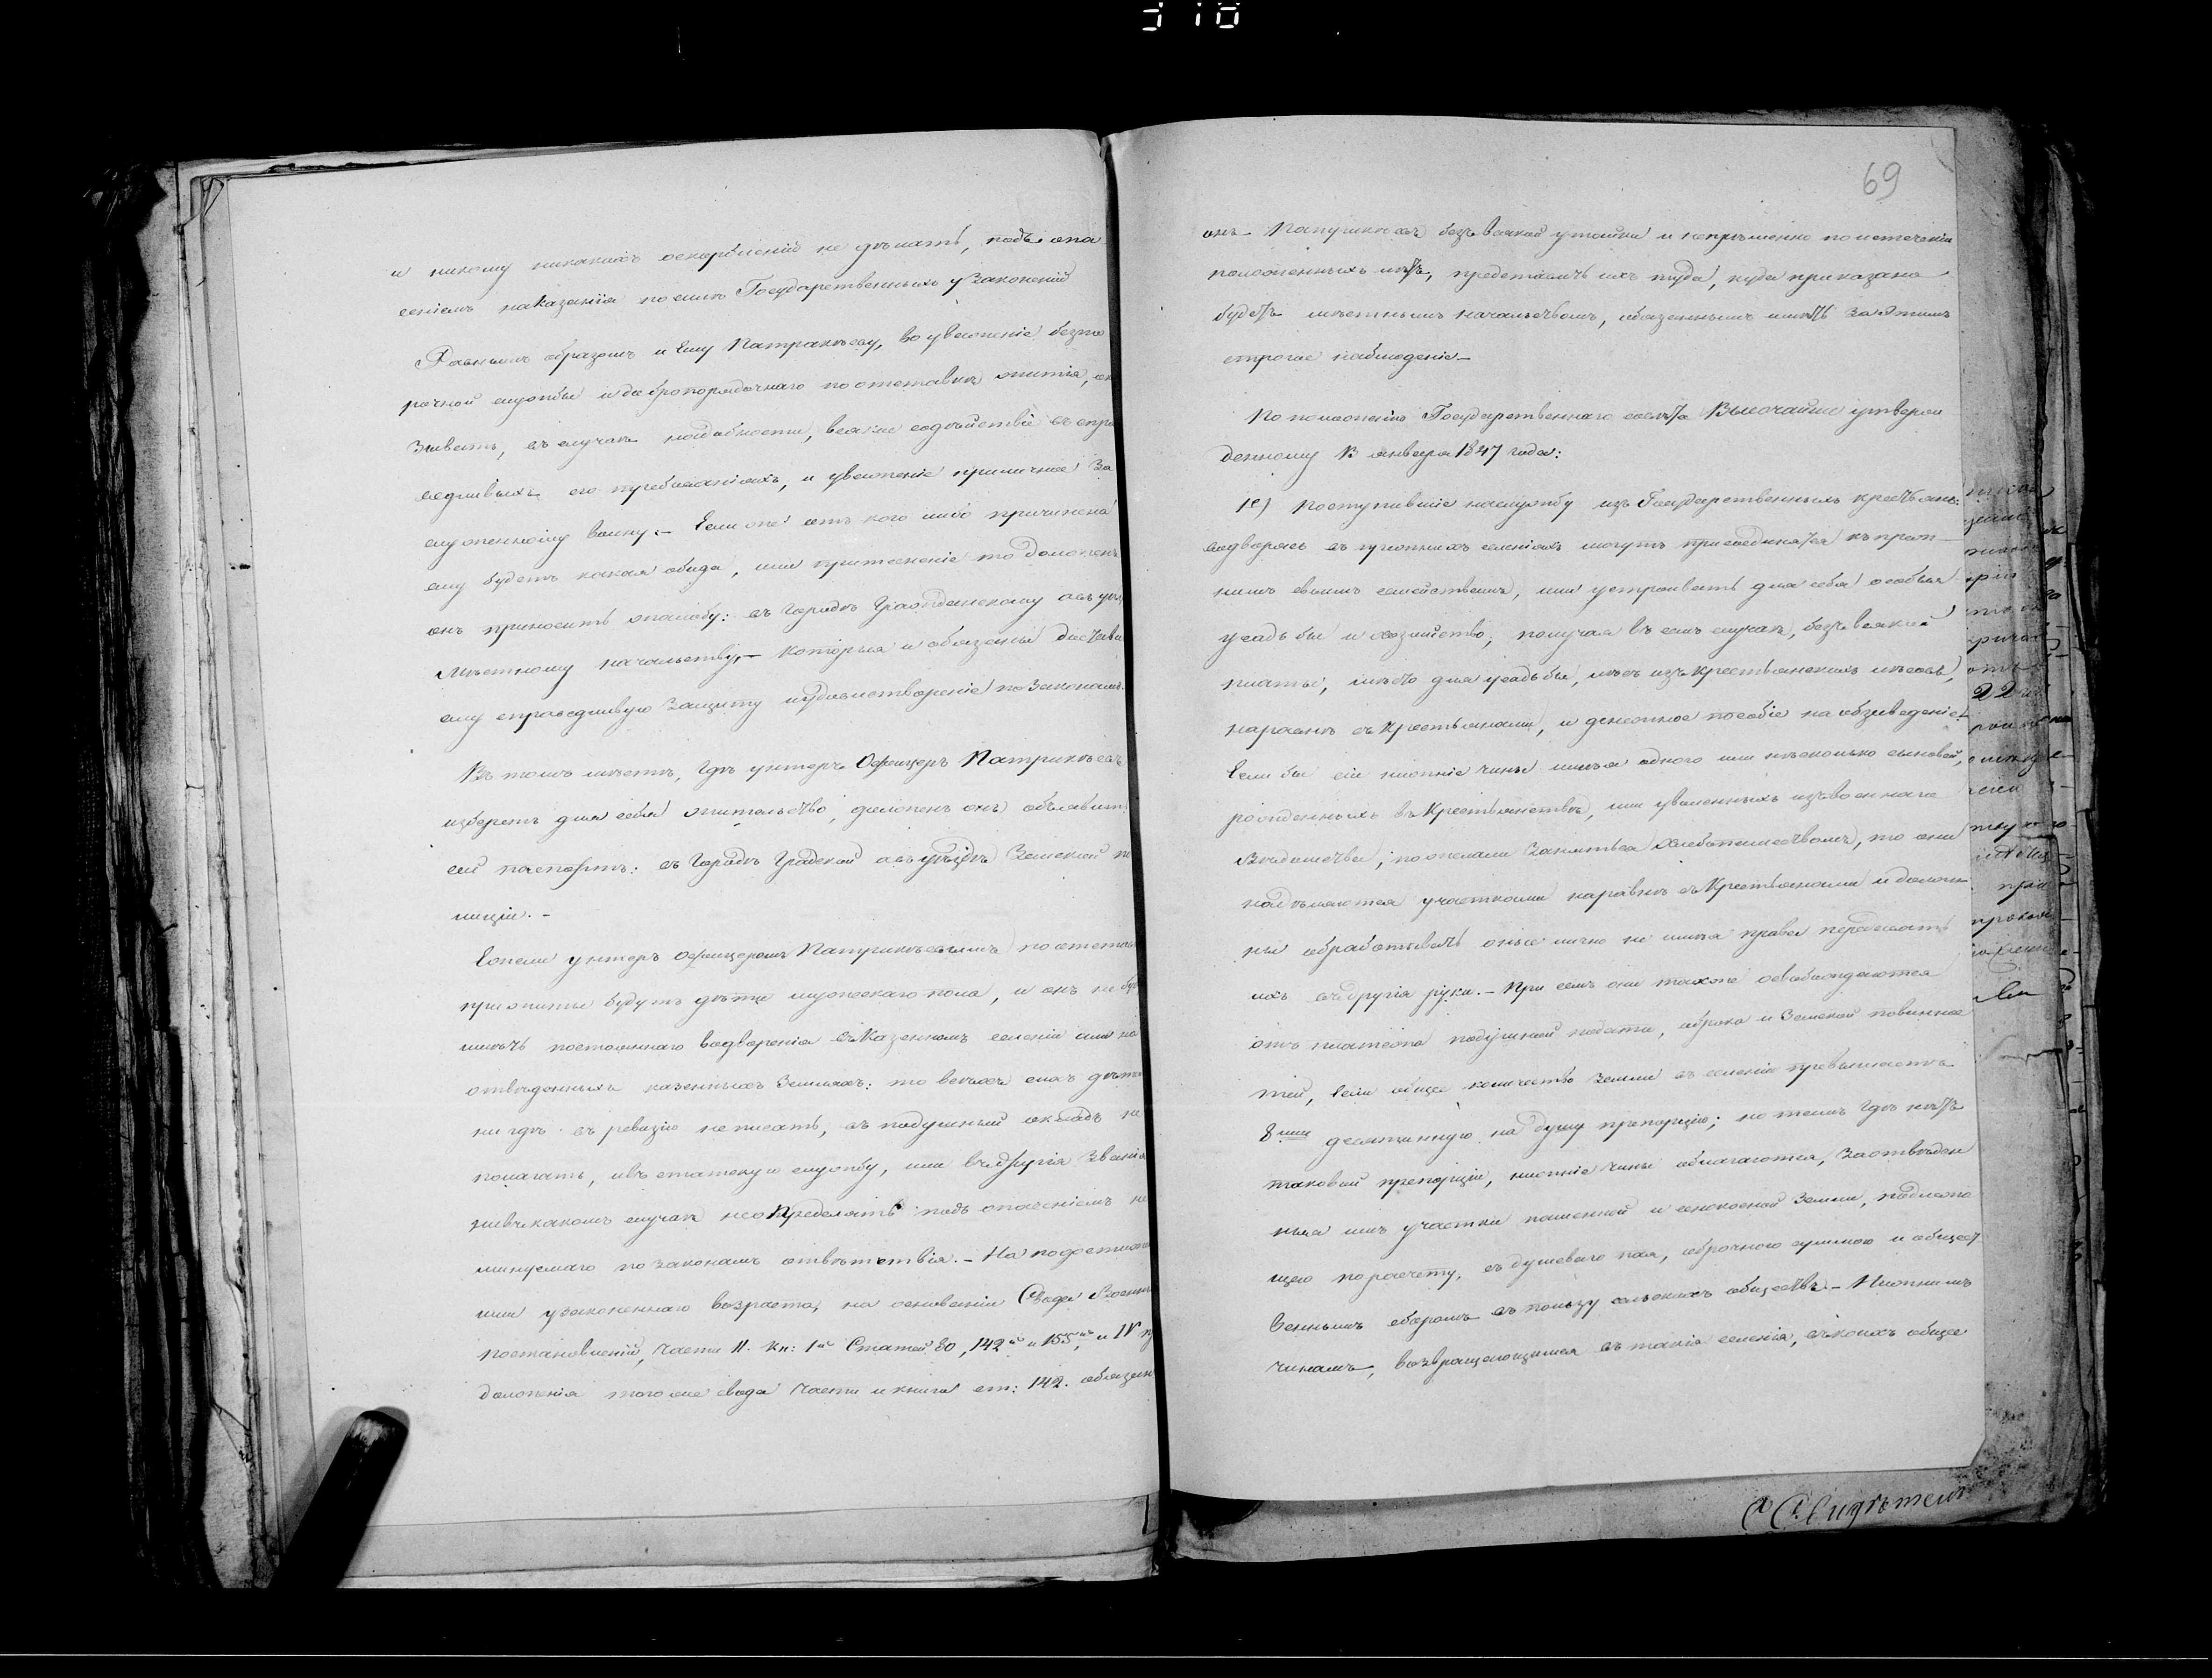 318
и никому никакихъ оскорбленій не дѣлать, подъ опа
сеніемъ наказанія по силѣ Государственныхъ узаконеній
Равнымъ образомъ и Ему Патрикѣеву, во уваженіе безпо
рочной службы и добропорядочнаго по отставкѣ житія, ока
зывать, въ случаѣ надобности, всякое содѣйствіе въ спра
ведливыхъ его требованіяхъ, и уваженіе приличное за
служенному воину. – Если же отъ кого либо причинена
ему будетъ какая обида, или притесненіе то долженъ
онъ приносить жалобу: въ городѣ Гражданскому а въ уѣз
Мѣстному начальству, – которыя и обязаны доставить
ему справедливую защиту и удовлетвореніе по Законамъ.
Въ томъ мѣстѣ, гдѣ унтеръ Офицеръ Патрикѣевъ
изберетъ для себя жительство, долженъ онъ объявить
сей паспортъ: въ городѣ Градской а въ уѣздѣ Земской по
лиціи. –
Ежели унтеръ Офицеромъ Патрикѣевымъ по отстав
прижиты будутъ дѣти мужескаго пола, и онъ не буд
имѣть постояннаго водворенія въ Казенномъ селеніи или на
отведенныхъ казенныхъ Земляхъ: то всѣхъ сихъ дѣтей
ни гдѣ въ ревизію не писать, въ подушный окладъ не
полагать, и въ статскую службу, или въ другія званія
ни въ какомъ случаѣ не опредѣлять подъ опасеніемъ не
минуемаго по законамъ отвѣтствія. – На по достиж
ими узаконеннаго возраста, на основаніи Свода Военны
постановленій, части II. Кн: 1й Статей 80, 142й и 155й, и IV пр
долженія того же свода части и книги ст: 142. обязан
69
онъ Патрикѣевъ безъ всякой утайки и непремѣнно по истеченіи
положенныхъ лѣтъ, представить ихъ туда, куда приказано
будетъ мѣстнымъ начальствомъ, обязаннымъ имѣть за этимъ
строгое наблюденіе –
По положенію Государственнаго совѣта Высочайше утверж
денному 13 января 1847 года:
1е) Поступившіе на службу изъ Государственныхъ крестьянъ:
водворясь въ прежнихъ селеніяхъ могутъ присоединяться къ преж
нимъ своимъ семействамъ, или устроивать для себя особыя
усадьбы и хозяйство; получая въ семъ случаѣ, безъ всякой
платы, мѣсто для усадьбы, лѣсъ изъ крестьянскихъ лѣсовъ,
наравнѣ съ Крестьянами, и денежное пособіе на обзаведеніе –
Если бы сіи нижніе чины имѣя одного или нѣсколько сыновей,
рожденныхъ въ Крестьянствѣ, или уволенныхъ изъ военнаго
Вѣдомства, пожелали заняться хлебопашествомъ, то они
надѣляются участками наравнѣ съ Крестьянами и долж
ны обработывать оные лично не имѣя права передавать
ихъ въ другія руки. – При семъ они также освобождаются
отъ платежа подушной подати, оброка и Земской повиннос
тей, если общее количество земли въ селеніи превышаетъ
8ми десятинную на душу пропорцію; но тамъ гдѣ нѣтъ
таковой пропорціи, нижніе чины облагаются, за отведен
ныя имъ участки пашенной и сенокосной земли, подлежа
щею по расчету, съ душеваго пая, оброчною суммою и общест
веннымъ сборомъ въ пользу сельскихъ обществъ. – Нижнимъ
чинамъ, возвращающимся въ такія селенія, въ коихъ общее